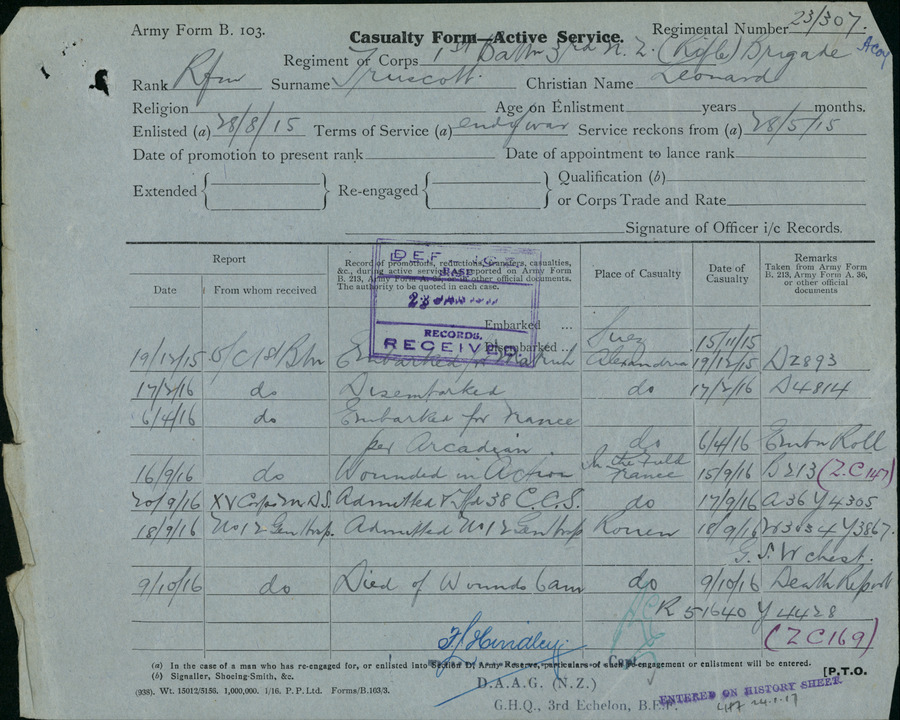 Army Form B. 103.
Regimental Number 23/307.
Casualty Form—Active Service.
Regiment or Corps 1st Battn 3rd N.Z. (Rifle) Brigade A Coy
Rank Rfm Surname Truscott. Christian Name Leonard
Religion Age on Enlistment years months.
Enlisted (a) 28/8/15 Terms of Service (a) end of war Service reckons from (a) 28/5/15
Date of promotion to present rank Date of appointment to lance rank
Extended Re-engaged Qualification (b)
or Corps Trade and Rate
Signature of Officer i/c Records.
Report
Date From whom received
Record of promotions, reductions, transfers, casualties, &c., during active service, as reported on Army Form B. 213, Army Form A. 36, or other official documents. The authority to be quoted in each case.
Place of Casualty
Date of Casualty
Remarks
Taken from Army Form B. 213, Army Form A. 36, or other official documents
BASE
RECORDS.
RECEIVED.
Embarked ... Suez 15/11/15
Disembarked ...
19/12/15 O/C 1st Btn Embarked for Matruh Alexandria 19/12/15 D2893
17/2/16 do Disembarked do 17/2/16 D4814
6/4/16 do Embarked for France
per Arcadian. do 6/4/16 Embn Roll
16/9/16 do Wounded in Action In the Field France 15/9/16 B213 (Z.C 147)
20/9/16 XV Corps M.D.S. Admitted & Tfd 38 C.C.S. do 17/9/16 A36 Y4305
18/9/16 No 12 Gen Hosp. Admitted No 12 Gen Hosp Rouen 18/9/16 W3034 Y3867.
G.S.W chest.
9/10/16 do Died of Wounds 6am do 9/10/16 Death Report
R 51640 Y 4428
(Z C 169)
F. Hindley.
(a) In the case of a man who has re-engaged for, or enlisted into Section D, Army Reserve, particulars of such re-engagement or enlistment will be entered.
(b) Signaller, Shoeing-Smith, &c.
[P.T.O.
Capt
D.A.A.G. (N.Z.)
(938). Wt. 15012/3158. 1,000,000. 1/16. P. P. Ltd. Forms/B.103/3.
G.H.Q., 3rd Echelon, B.E.F.
ENTERED ON HISTORY SHEET.
24.1.17